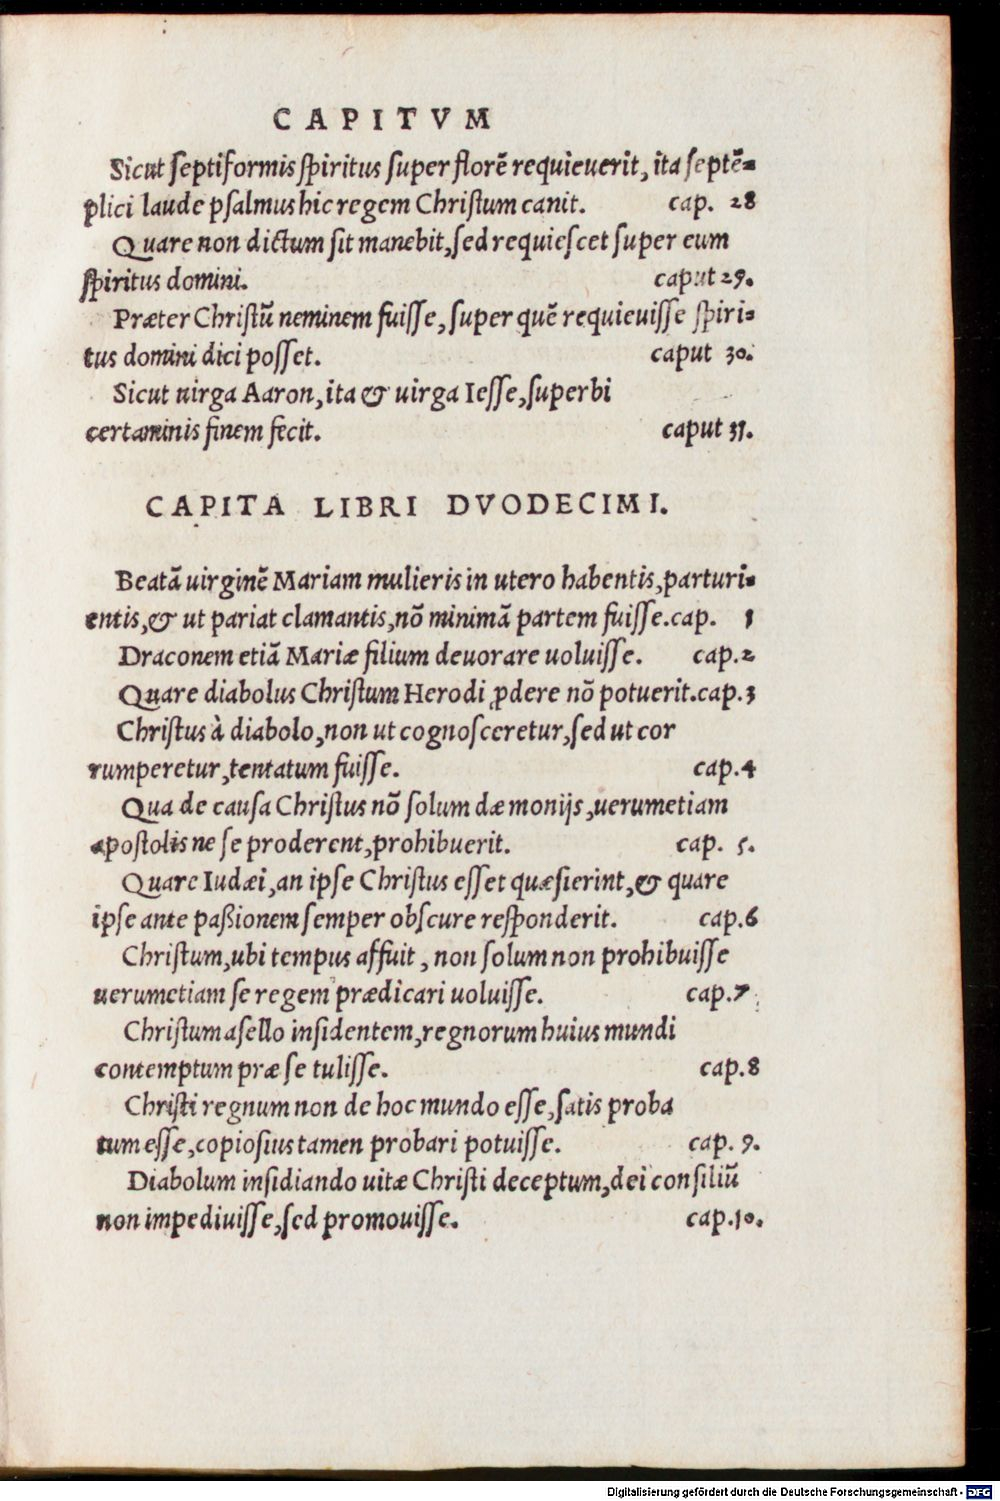 CAPITVM
Sicut ſeptiformis ſpiritus ſuper florē requieuerit, ita ſeptē=
plici laude pſalmus hic regem Chriſtum canit. cap. 28
Quare non dictum ſit manebit, ſed requieſcet ſuper eum
ſpiritus domini. caput 29.
Præter Chriſtū neminem fuiſſe, ſuper quē requieuiſſe ſpiri=
tus domini dici poſſet. caput 30.
Sicut uirga Aaron, ita & uirga Ieſſe, ſuperbi
certaminis finem fecit. caput 31.
CAPITA LIBRI DVODECIMI.
Beatā uirginē Mariam mulieris in utero habentis, parturi=
entis, & ut pariat clamantis, nō minimā partem fuiſſe. cap. 1
Draconem etiā Mariæ filium deuorare uoluiſſe. cap. 2
Quare diabolus Chriſtum Herodi ꝓdere nō potuerit. cap. 3
Chriſtus à diabolo, non ut cognoſceretur, ſed ut cor
rumperetur, tentatum fuiſſe. cap. 4
Qua de cauſa Chriſtus nō ſolum dæmonijs, uerumetiam
apoſtolis ne ſe proderent, prohibuerit. cap. 5.
Quare Iudæi, an ipſe Chriſtus eſſet quæſierint, & quare
ipſe ante paßionem ſemper obſcure reſponderit. cap. 6
Chriſtum, ubi tempus affuit, non ſolum non prohibuiſſe
uerumetiam ſe regem prædicari uoluiſſe. cap. 7
Chriſtum aſello inſidentem, regnorum huius mundi
contemptum præ ſe tuliſſe. cap. 8
Chriſti regnum non de hoc mundo eſſe, ſatis proba
tum eſſe, copioſius tamen probari potuiſſe. cap. 9.
Diabolum inſidiando uitæ Chriſti deceptum, dei conſiliū
non impediuiſſe, ſed promouiſſe. cap. 10.
Digitalisierung gefördert durch die Deutsche Forschungsgemeinschaft - DFG